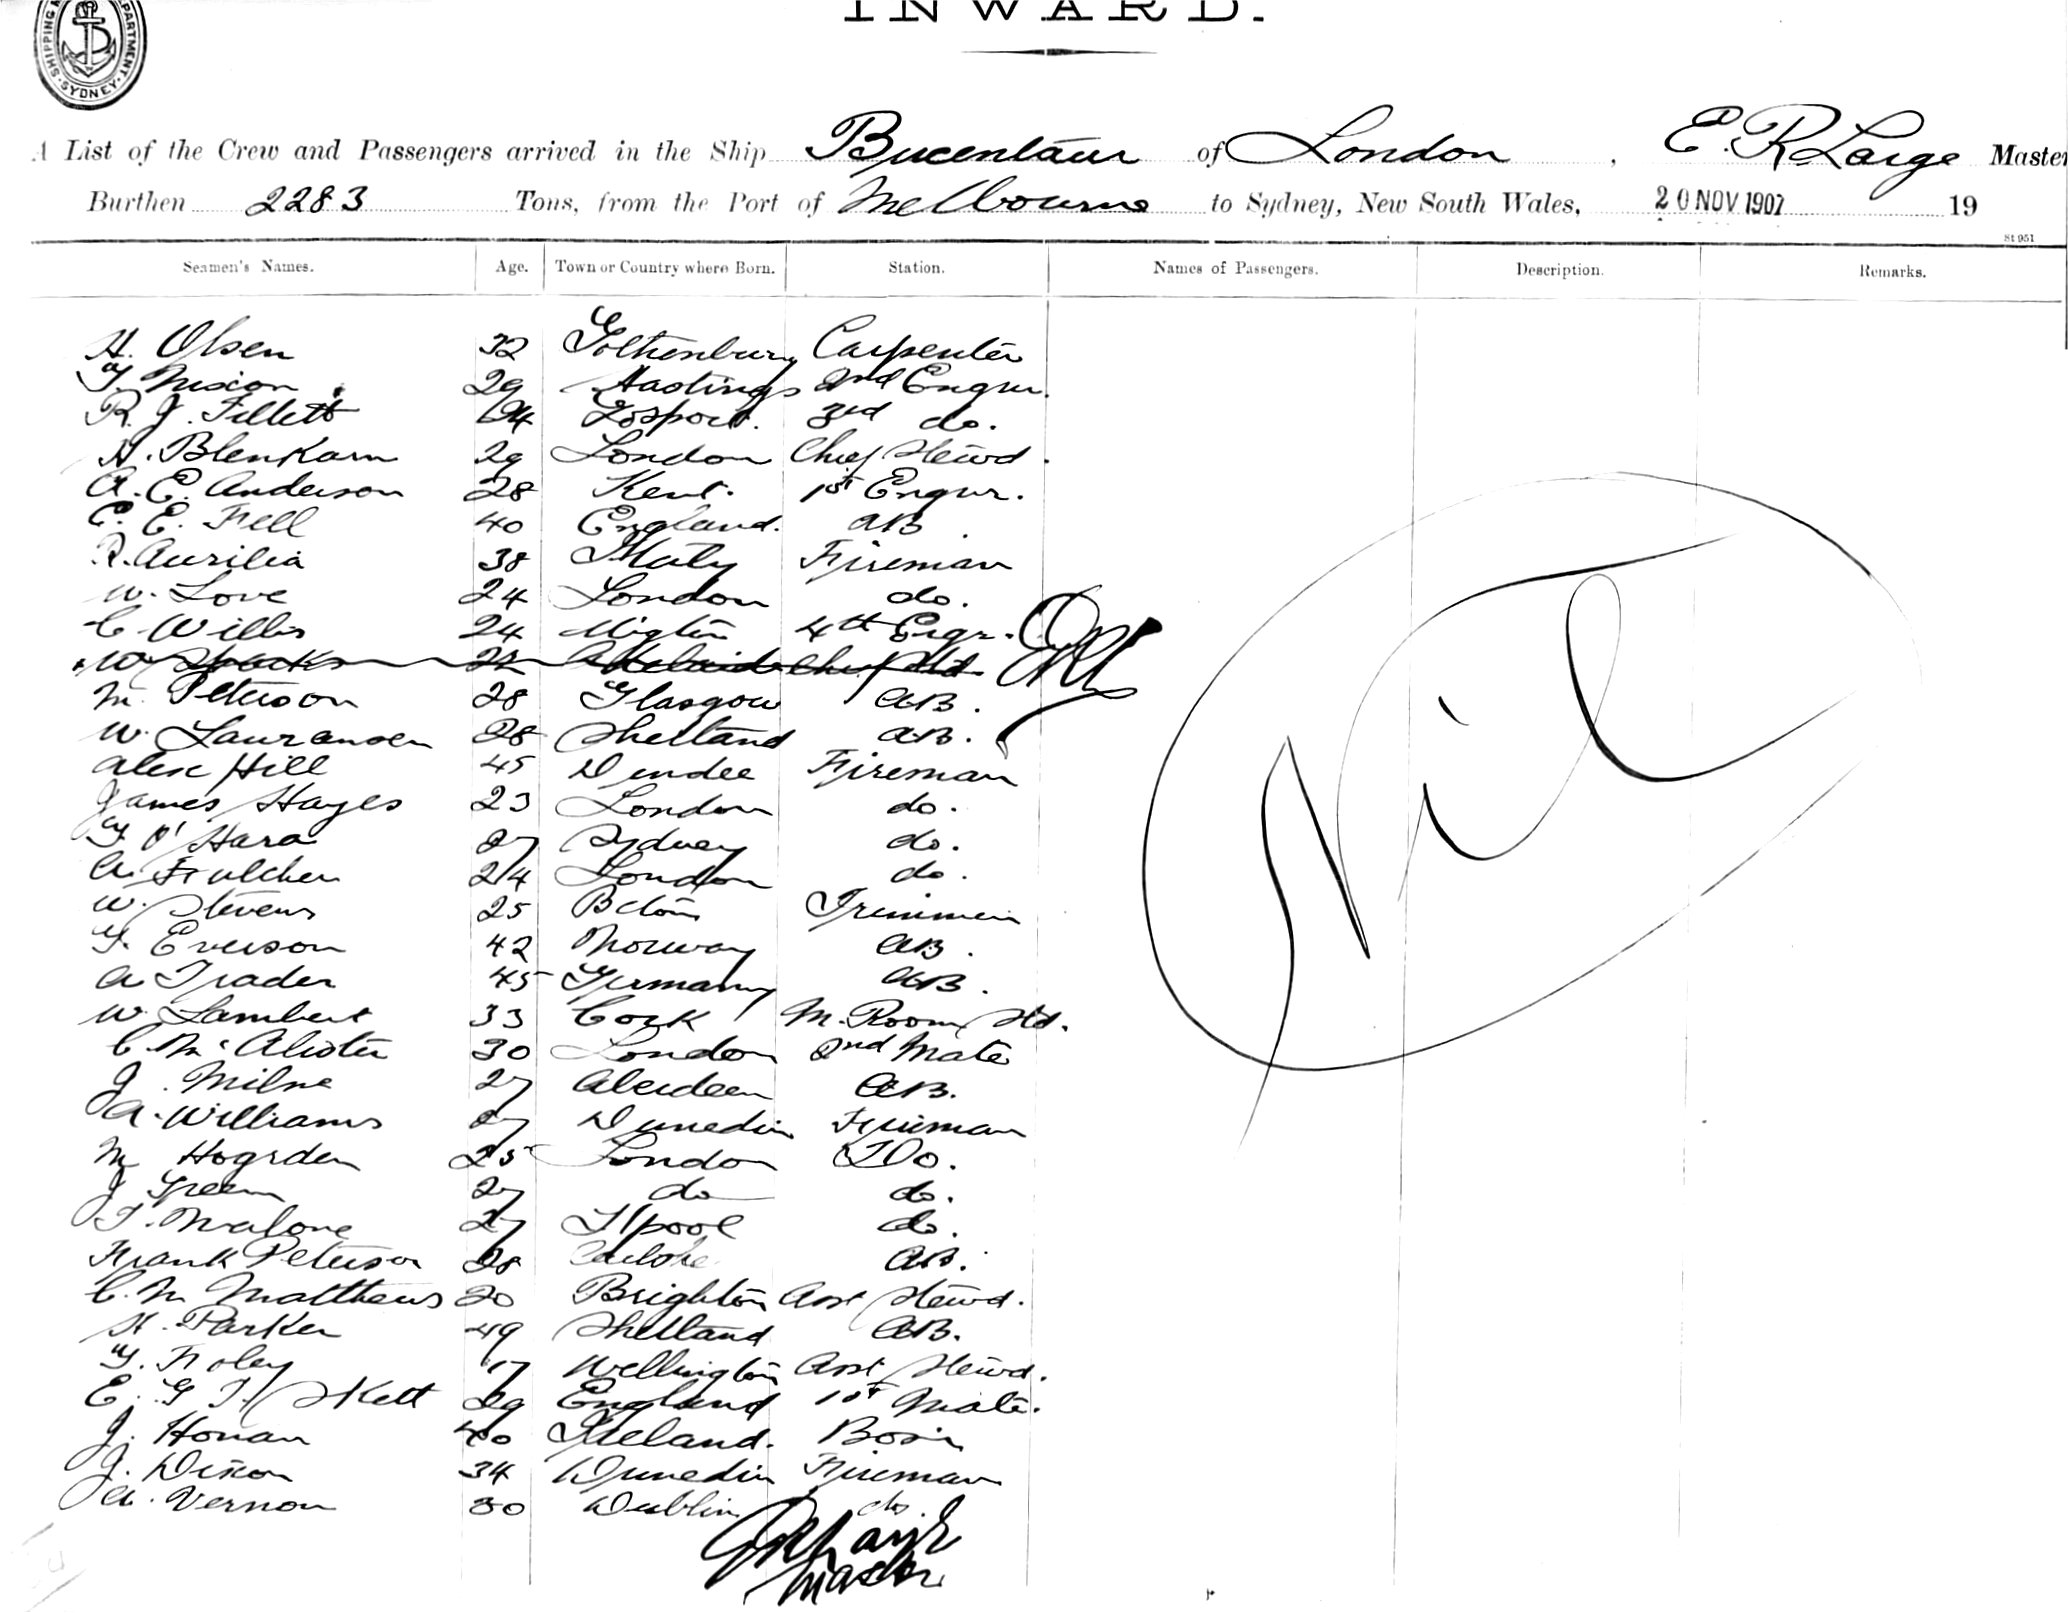 INWARD.
SHIPPING DEPARTMENT SYDNEY
A List of the Crew and Passengers arrived in the Ship Bucentaur of London, E. R. Large Master
Burthen 2283 Tons, from the Port of Melbourne to Sydney, New South Wales, 20 NOV 1907 19
St 951
Seamen's Names. Age. Town or Country where Born. Station. Names of Passengers. Description. Remarks.
H. Olsen 32 Gothenburg Carpenter
Nixon 29 Hastings 2nd Engnr.
R. J. Fillett 24 Gosport. 3rd do.
H. Blenkarn 29 London Chief Stewd.
A. E. Anderson 28 Kent. 1st Engnr.
E. E. Fell 40 England. AB
R. Aurilia 38 Italy Fireman
W. Love 24 London do.
C Willis 24 4th Engr.
W 22 Adelaide Chief Std
M. Peterson 28 Glasgow AB.
W. Lauransen 28 Shetland AB.
Alex Hill 45 Dundee Fireman
James Hayes 23 London do.
O'Hara 27 Sydney do.
A. Fulcher 24 London do.
W. Stevens 25 Trimmer
Everson 42 Norway AB.
A Trader 45 Germany AB.
W. Lambert 33 Cork M. Room Std.
C. McAlister 30 London 2nd Mate
J. Milne 27 Aberdeen AB.
A. Williams 27 Dunedin Fireman
M Hogrden 25 London Do.
J Green 27 do do.
T. Malone 27 L'pool do.
Frank Peterson 28 AB.
C. M Matthews 20 Brighton Asst Stewd.
H. Parker 49 Shetland AB.
Foley 17 Wellington Asst Stewd.
E. G T. Skett 29 England 1st Mate.
J. Honan 40 Ireland. Bosn
J. Dixon 34 Dunedin Fireman
A. Vernon 30 Dublin do.
Nil
ERLarge
Master